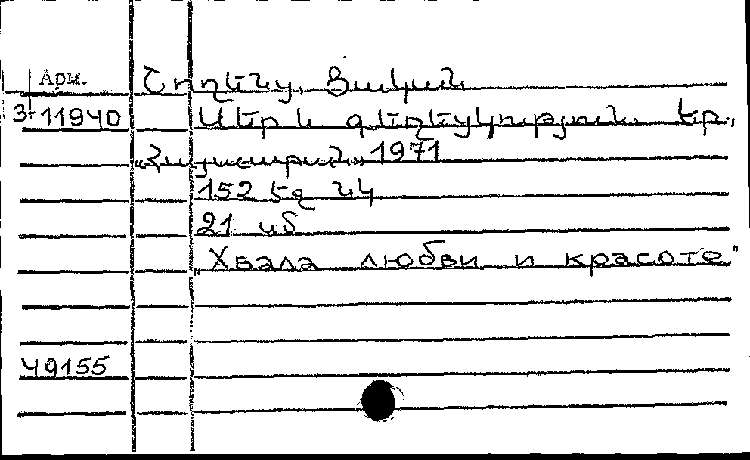 Арм. Շողենց, Յական
3-11940 Սեր և գեղեցկություն. Եր.,
«Հայաստան» 1971
152 էջ նկ
21 սմ
„Хвала любви и красоте"
49155